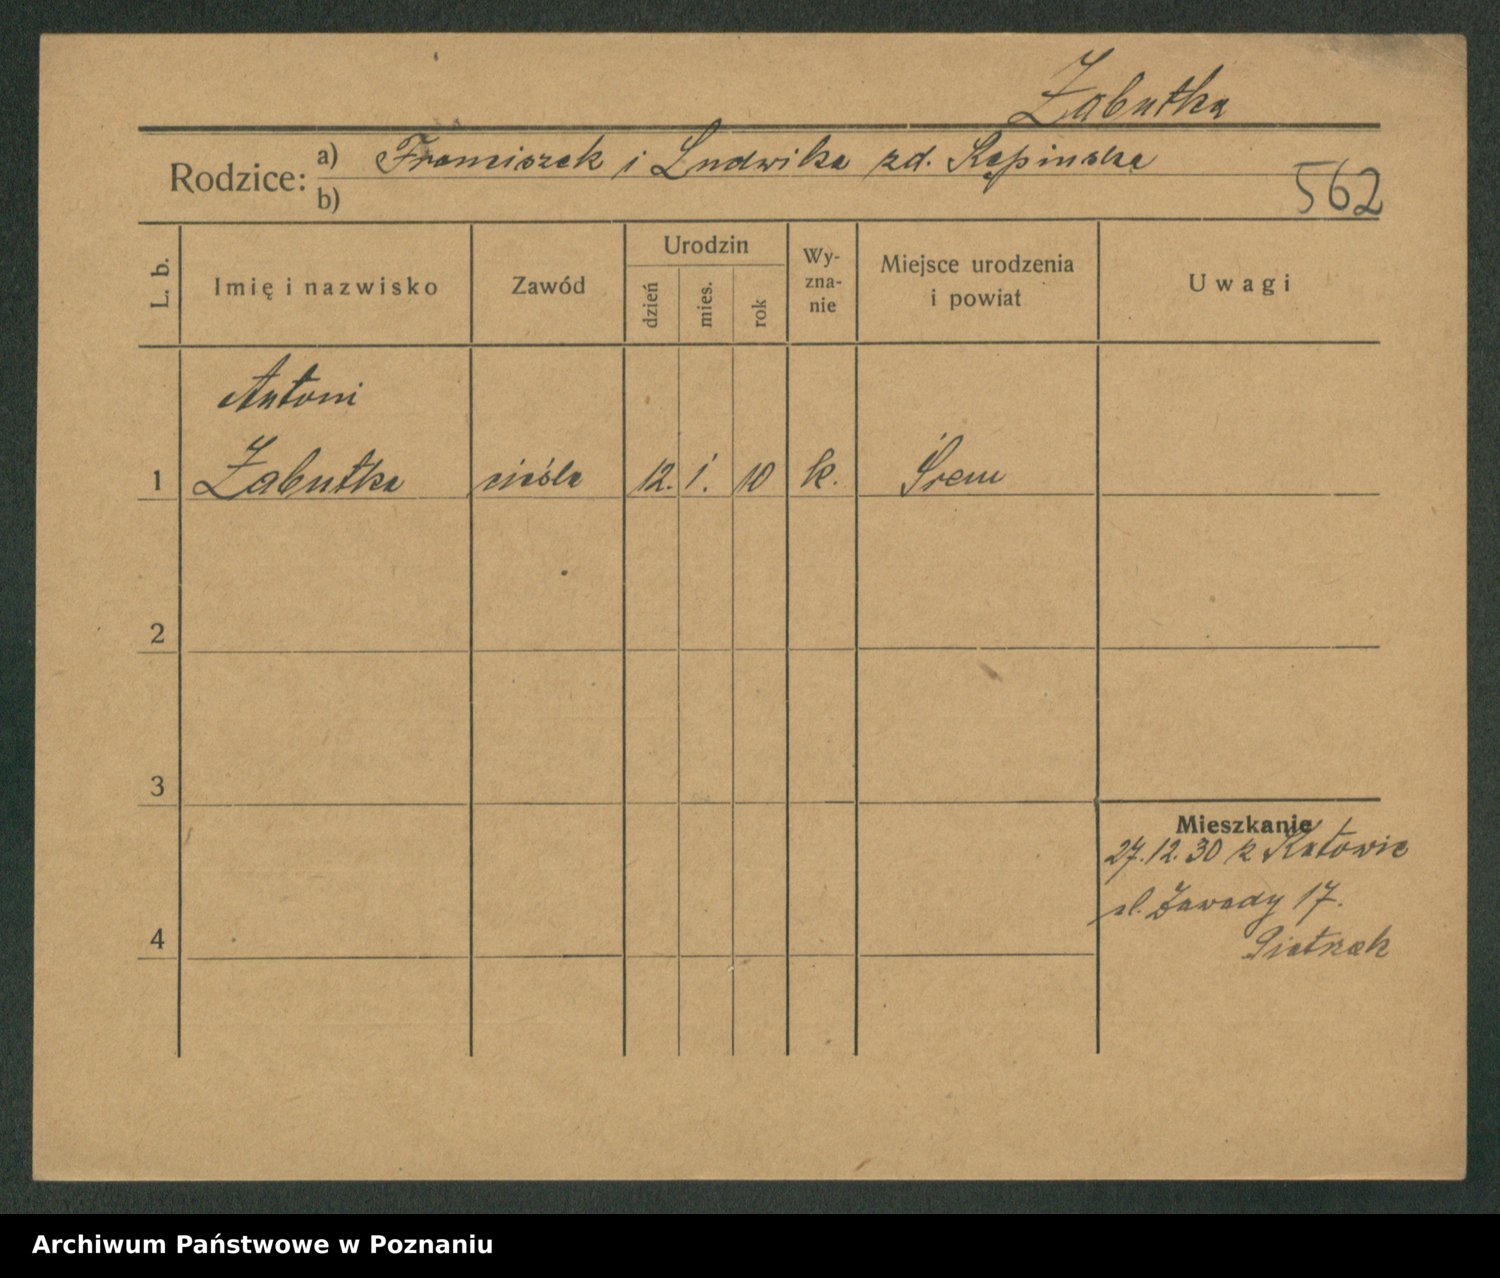 Żabutka
Rodzice: a) Franciszek i Ludwika zd. Kępinska
b)
562
L. b.
Imię i nazwisko
Zawód
Urodzin
dzień
mies.
rok
Wy-
zna-
nie
Miejsce urodzenia
i powiat
Uwagi
Antoni
1 Żabutka cieśla 12. 1. 10 k. Śrem
2
3
Mieszkanie
27.12.30 z Katowic
ul. Zawady 17.
4
Pietrzak
Archiwum Państwowe w Poznaniu